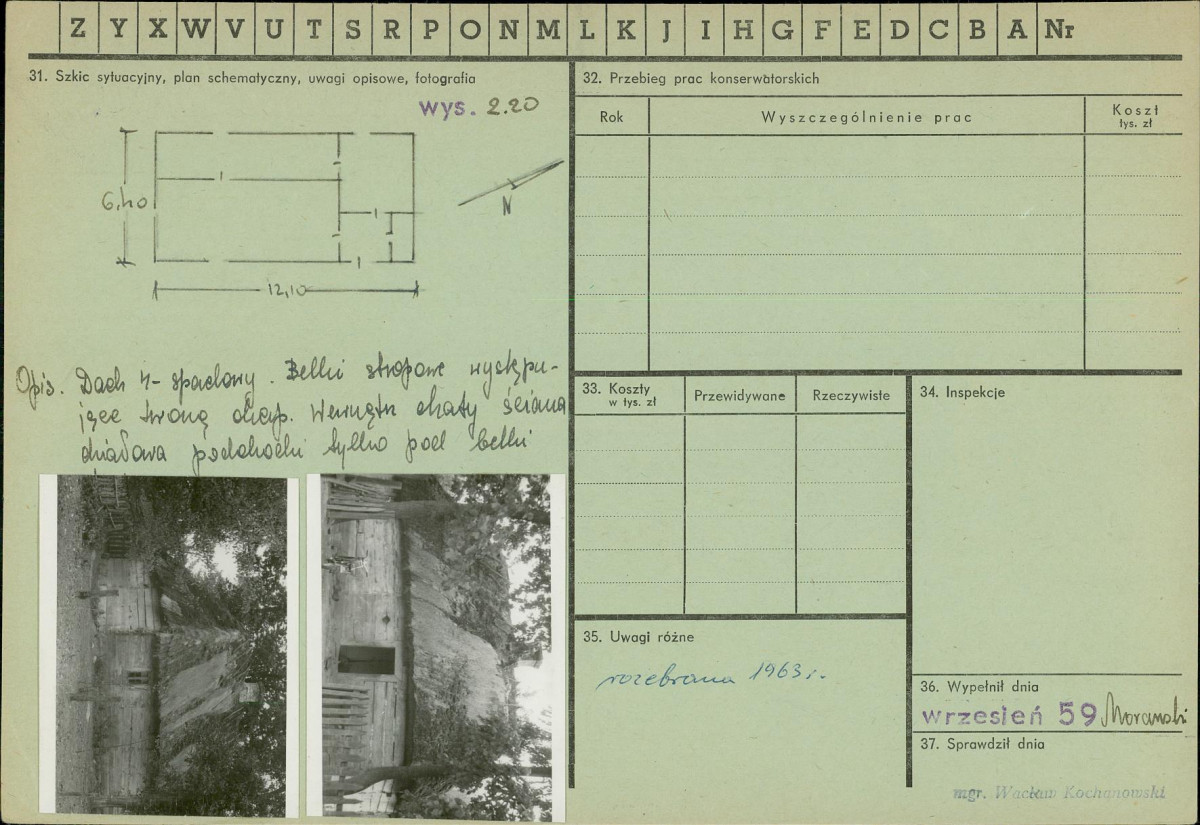 Z Y X W V U T S R P O N M L K J I H G F E D C B A Nr
31. Szkic sytuacyjny, plan schematyczny, uwagi opisowe, fotografia
wys. 2.20
6,40
N
12,10
Opis. Dach 4-spadowy. Belki stropowe występu-
jące tworzą okap. Wewnątrz chaty ściana
działowa podchodzi tylko pod belki
32. Przebieg prac konserwatorskich
Rok
Wyszczególnienie prac
Koszt
tys. zł
33. Koszty
w tys. zł
Przewidywane
Rzeczywiste
34. Inspekcje
35. Uwagi różne
rozebrana 1963 r.
36. Wypełnił dnia
wrzesień 59 Morawski
37. Sprawdził dnia
mgr. Wacław Kochanowski